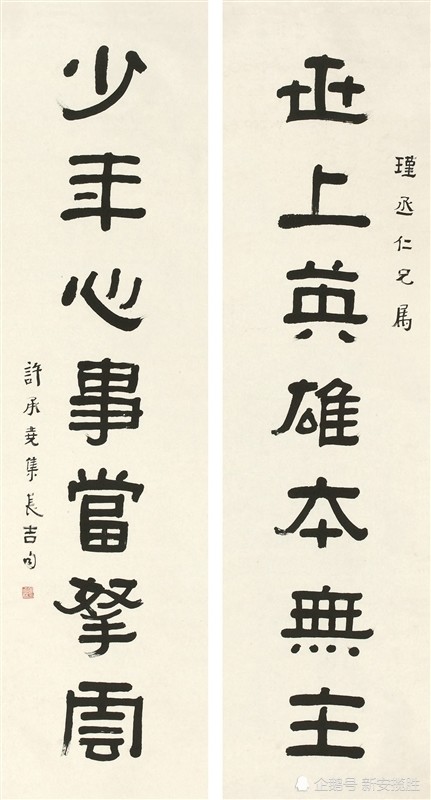 瑾丞仁兄属
世上英雄本無主
少年心事當拏雲
許承堯集長吉句
企鹅号 新安揽胜